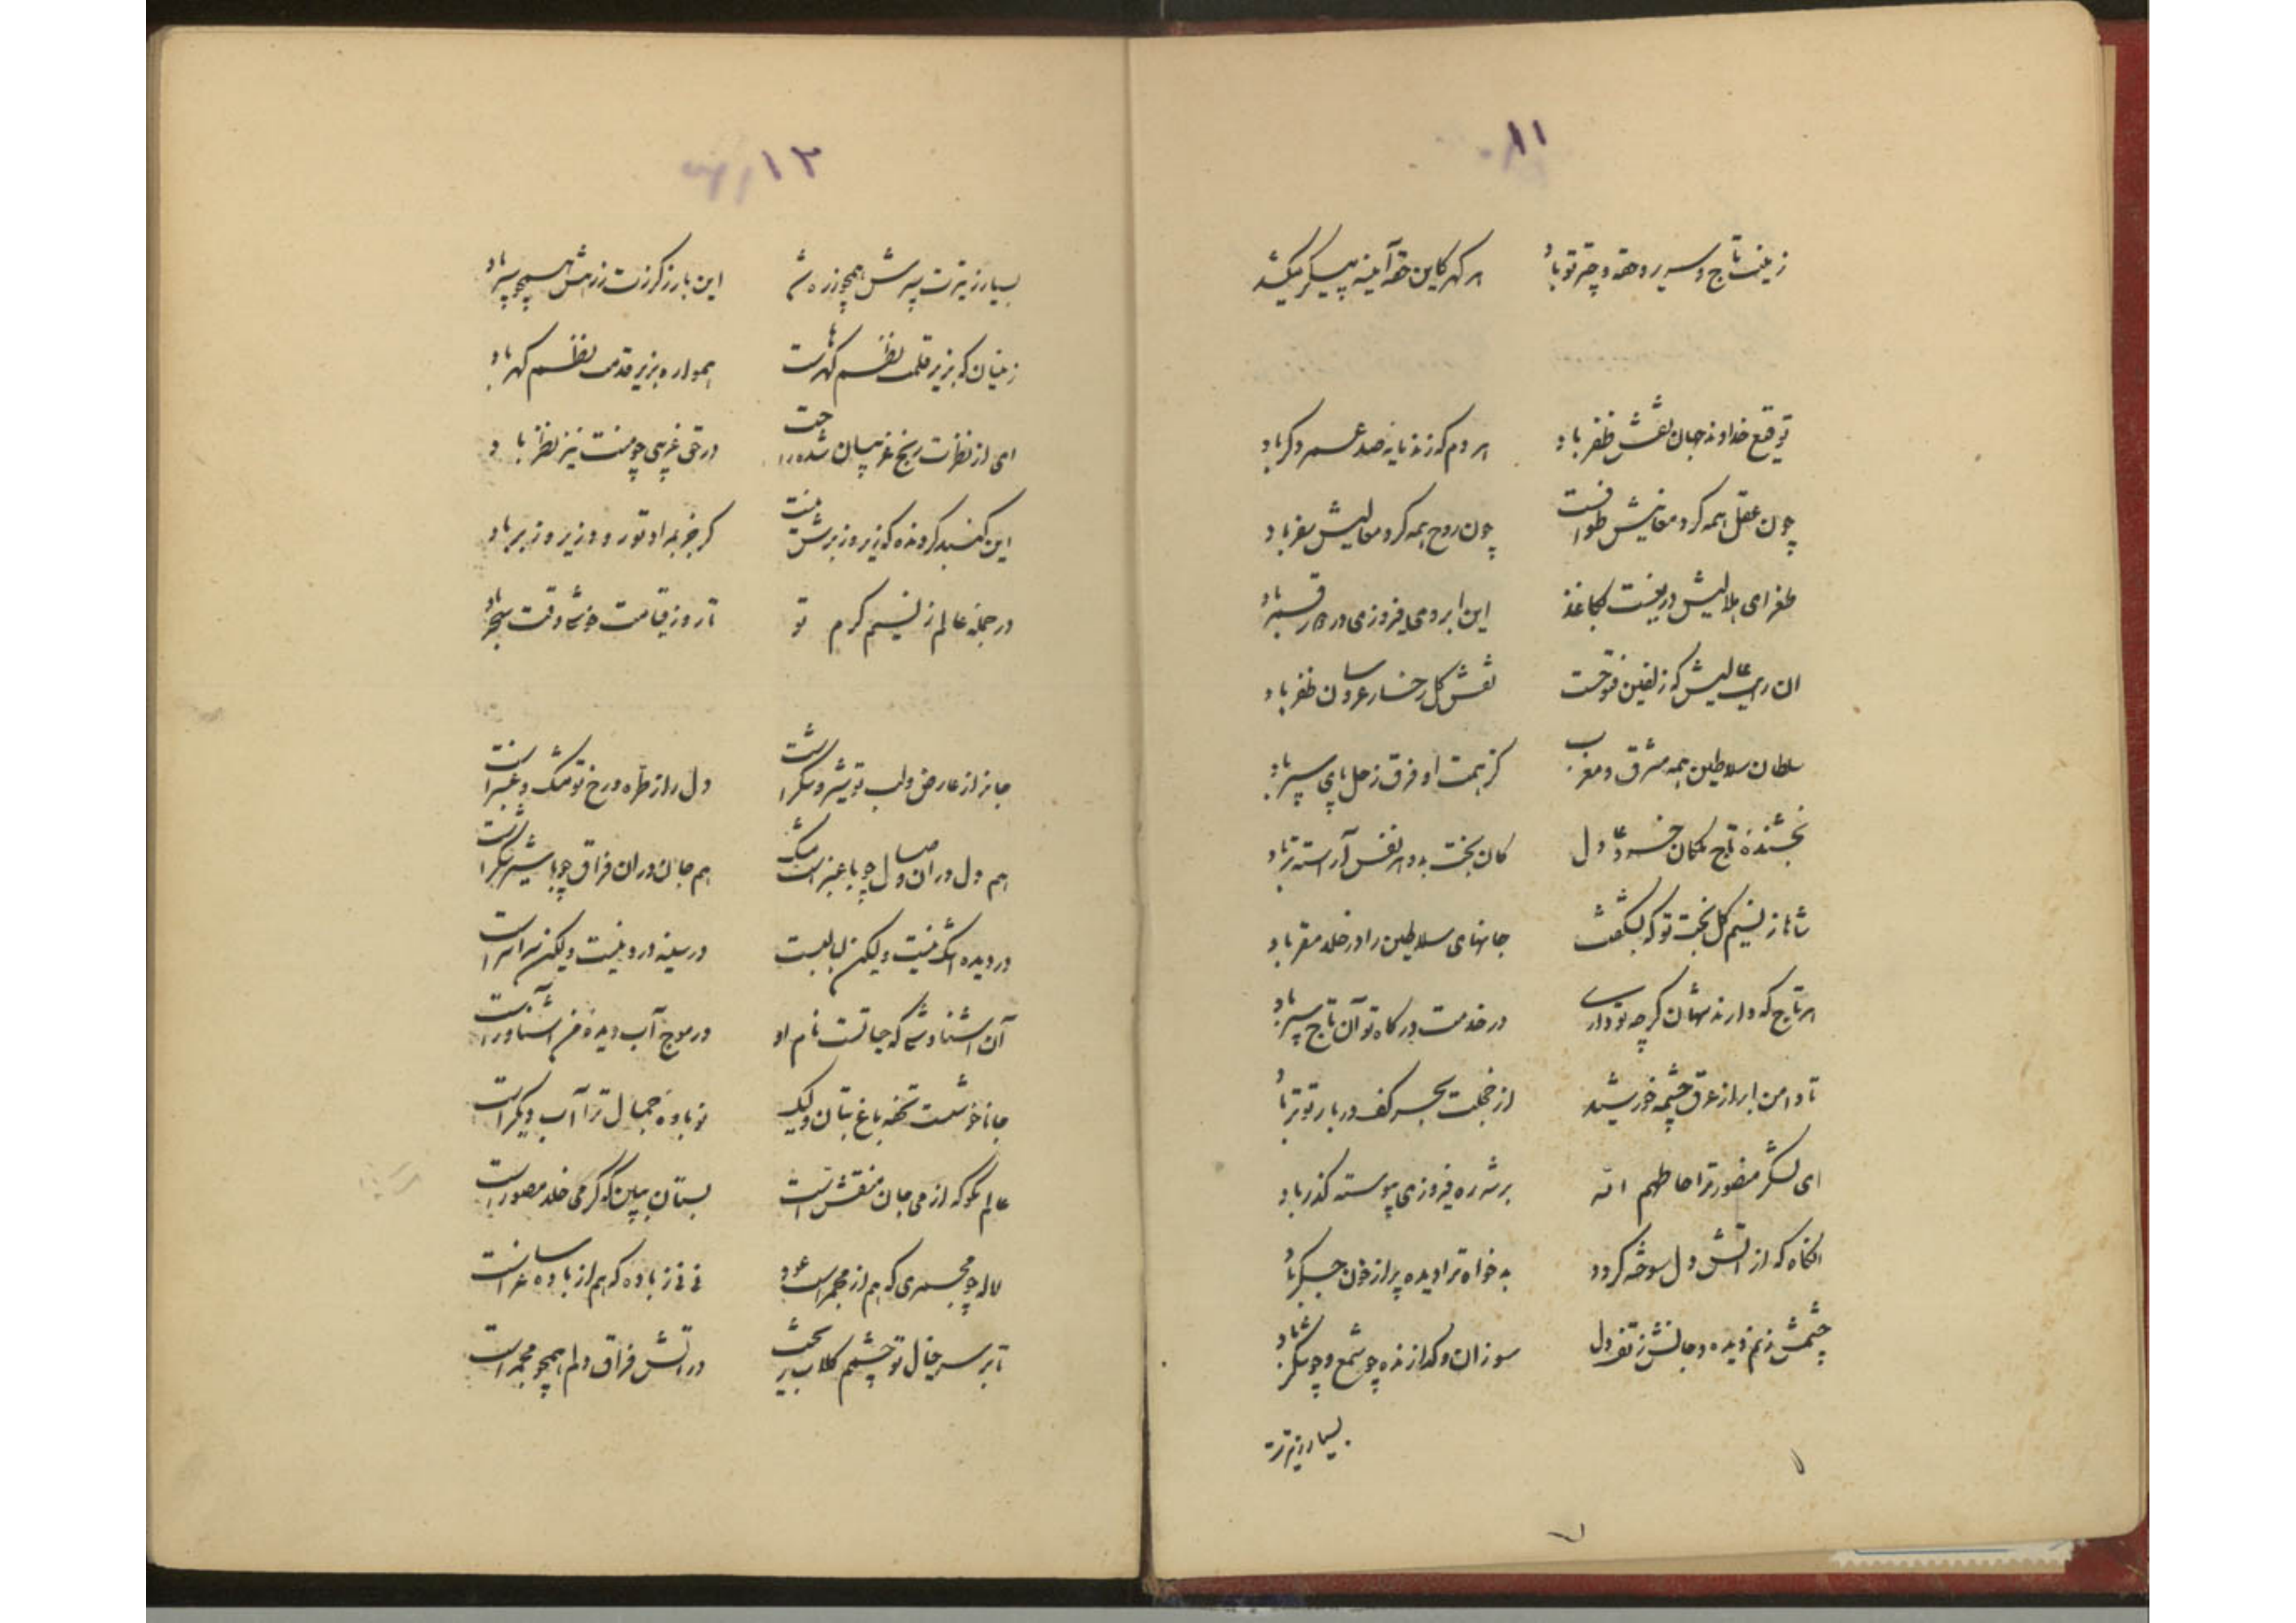 ۱۱
زینت تاج و سریر و حقه و چتر تو باد هر گهر کاین حقه آینه پیکر میکشد
توقیع خداوند جهان نقش ظفر باد هر دم که زند نایه صد عمر دگر باد
چون عقل همه گرد معانیش طوافست چون روح همه گرد معالیش سفر باد
طغرای هلالیش در بکاغذ این ابروی فیروزی در باد
ان رایت عالیش که زلفین فتوحست نقش گل رخسار عروسان ظفر باد
سلطان سلاطین همه مشرق و مغرب کز همت او فرق زحل پای سپر باد
بخشنده تاج ملکان خسرو عادل کان بخت بدو هر نفس آراسته تر باد
شاها ز نسیم گل بخت تو که بشکفت جانهای سلاطین را در خلد مقر باد
هر تاج که دارند شهان گرچه تو داری در خدمت درگاه تو آن تاج سپر باد
تا دامن ابر از عرق چشمه خورشید از خجلت بحر کف دربار تو تر باد
ای لشکر منصور ترا حاطهم الله بر شه ره فیروزی پیوسته گذر باد
انگاه که از اتش دل سوخته گردد بدخواه ترا دیده پر از خون جگر باد
چشمش ز نم دیده و جانش ز تف دل سوزان و گدازنده چو شمع و چو شکر باد
بسیار ز تیرت
۱۲
بسیار ز تیرت سپرش همچو زره شد این بار ز گرزت زرهش همچو سپر باد
زینسان که بزیر قلمت نظم گهرهاست همواره بزیر قدمت نظم گهر باد
ای از نظرت رنج غریبان شده راحت در حق غریبی چو منت نیز نظر باد
این گنبد گردنده که زیر و زبرش نیست گر جز بمراد تو رود زیر و زبر باد
در جمله عالم ز نسیم کرم تو تا روز قیامت خوشی وقت سحر باد
جانرا ز عارض و لب تو شیر و شکر است دل را ز طره و رخ تو مشک و عنبر است
هم دل در ان وصال چو با عنبر است مشک هم جان در ان فراق چو با شیر شکر است
در دیده اشک نیست ولیکن لبالبست در سینه درد نیست ولیکن سراسر است
آن اشنا وشی که جانست نام او در موج آب دیده من اشناور است
جانا خوشست تحفه باغ بتان ولیک نوباوه جمال ترا آب دیگر است
عالم نگو که از می جان منقش است بستان ببین که گرمی خلد مصور است
لاله چو مجمری که هم از مجمر است عود نی نی ز باده که هم از باده ساغر است
تا بر سر خیال تو چشمم گلاب ریخت در اتش فراق دلم همچو مجمر است